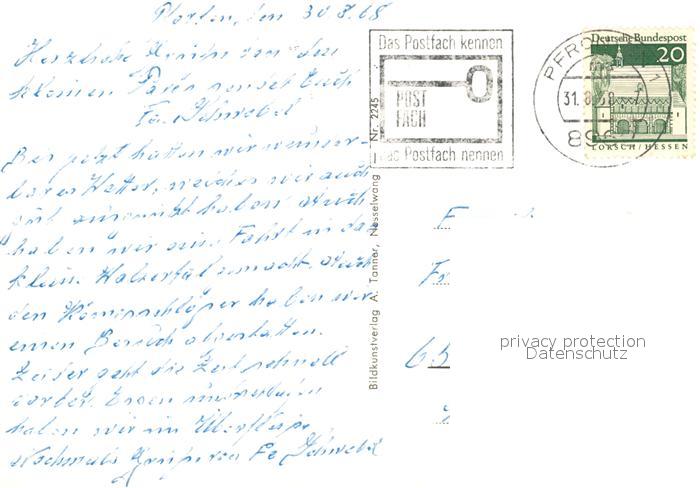 Pfronten, den 30.8.68
Herzliche Grüße von den
kleinen Paris sendet Euch
Fa. Schwebel
Bis jetzt hatten wir wunder-
bares Wetter, welches wir auch
gut ausgenützt haben. Auch
haben wir eine Fahrt in das
kleine Walsertal gemacht. Auch
den Königsschlößer haben wir
einen Besuch abgestatten.
Leider geht die Zeit schnell
vorbei. Essen und trinken
haben wir im Überfluß
Nochmals Grüße von Fa. Schwebel
Das Postfach kennen
POST
FACH
Das Postfach nennen
PFRONTEN 1
31.8.68
Deutsche Bundespost
20
LORSCH / HESSEN
Bildkunstverlag A. Tanner, Nesselwang Nr. 2245
F
Fr
65
privacy protection
Datenschutz